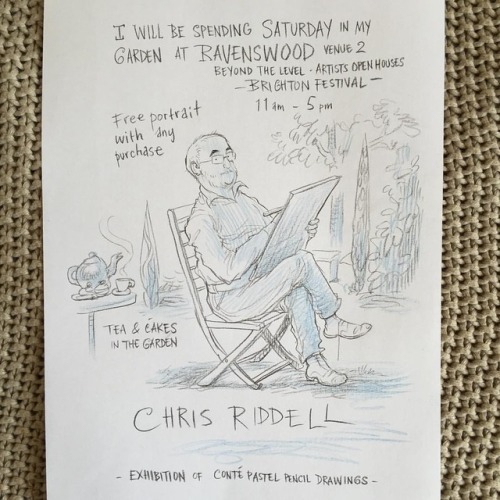 I WILL BE SPENDING SATURDAY IN MY
GARDEN AT RAVENSWOOD VENUE 2
BEYOND THE LEVEL · ARTISTS OPEN HOUSES
- BRIGHTON FESTIVAL -
11 am - 5 pm
Free portrait
with any
purchase
TEA & CAKES
IN THE GARDEN
CHRIS RIDDELL
- EXHIBITION OF CONTÉ PASTEL PENCIL DRAWINGS -